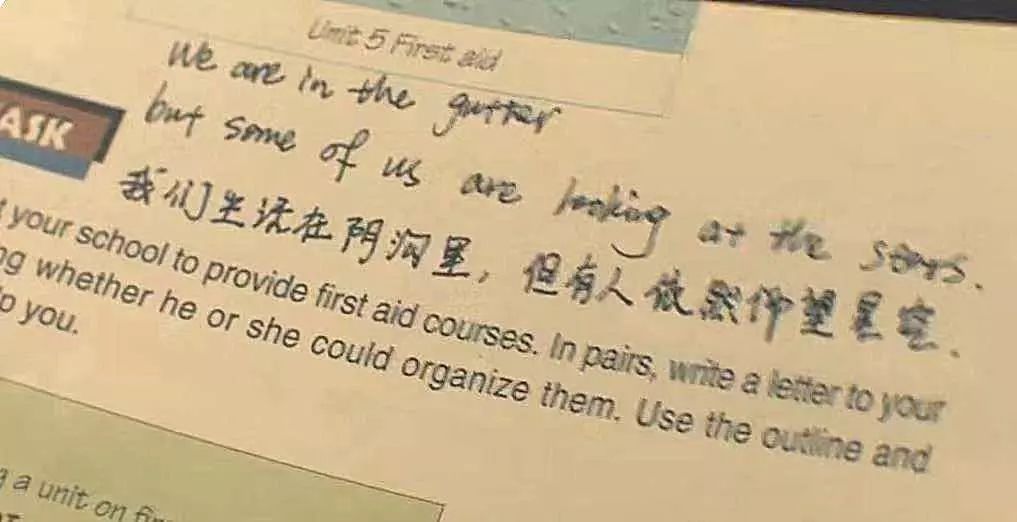 Unit 5 First aid
We are in the gutter
but some of us are looking at the stars.
ASK
我们生活在阴沟里，但有人依然仰望星空.
your school to provide first aid courses. In pairs, write a letter to your
ng whether he or she could organize them. Use the outline and
p you.
g a unit on fir